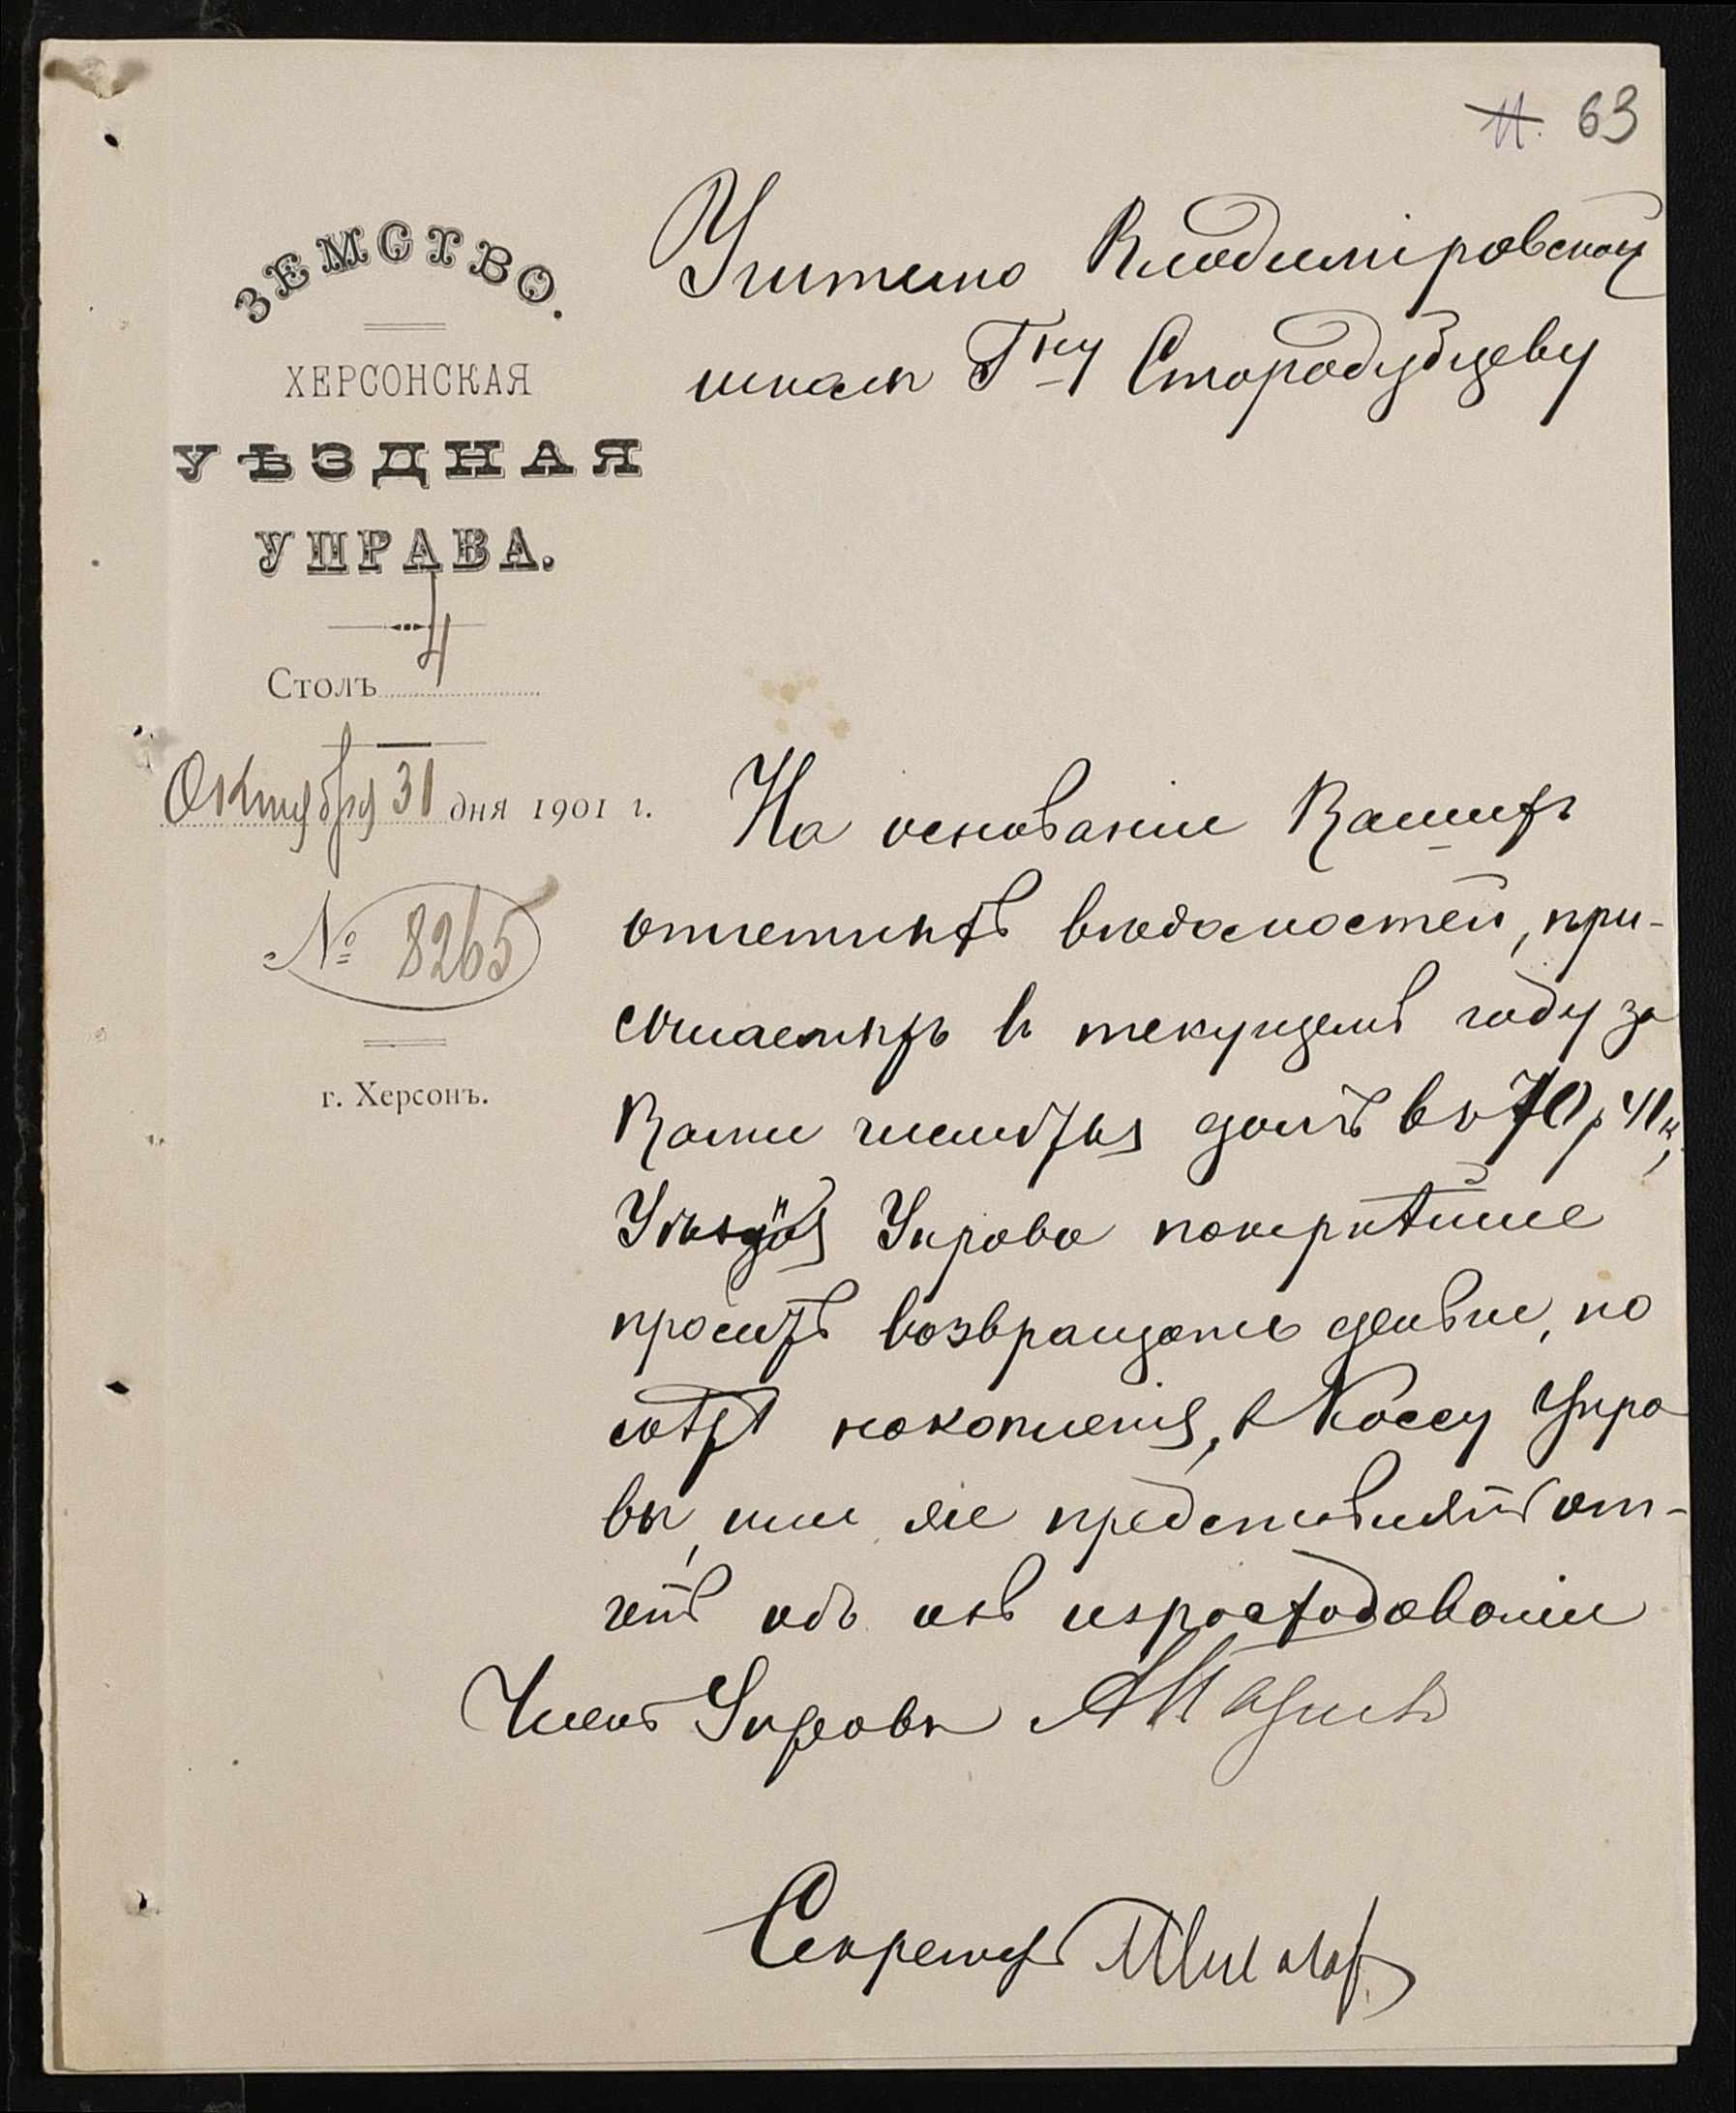 11. 63
ЗЕМСТВО.
ХЕРСОНСКАЯ
УѢЗДНАЯ
УПРАВА.
Столъ 4
Октября 31 дня 1901 г.
№ 8265
г. Херсонъ.
Учителю Владимiровской
школы Гну Стародубцеву
На основанiи Вашихъ
отчетныхъ вѣдомостей, при-
сылаемыхъ въ текущемъ году за
Вами числится долгъ въ 70 р 41 к,
Уѣздная Управа покорнѣйше
проситъ возвращать деньги, по
мѣрѣ накопленiя, въ Кассу Упра
вы, или же представлять от-
четъ объ ихъ израсходованiи
Членъ Управы
Секретарь